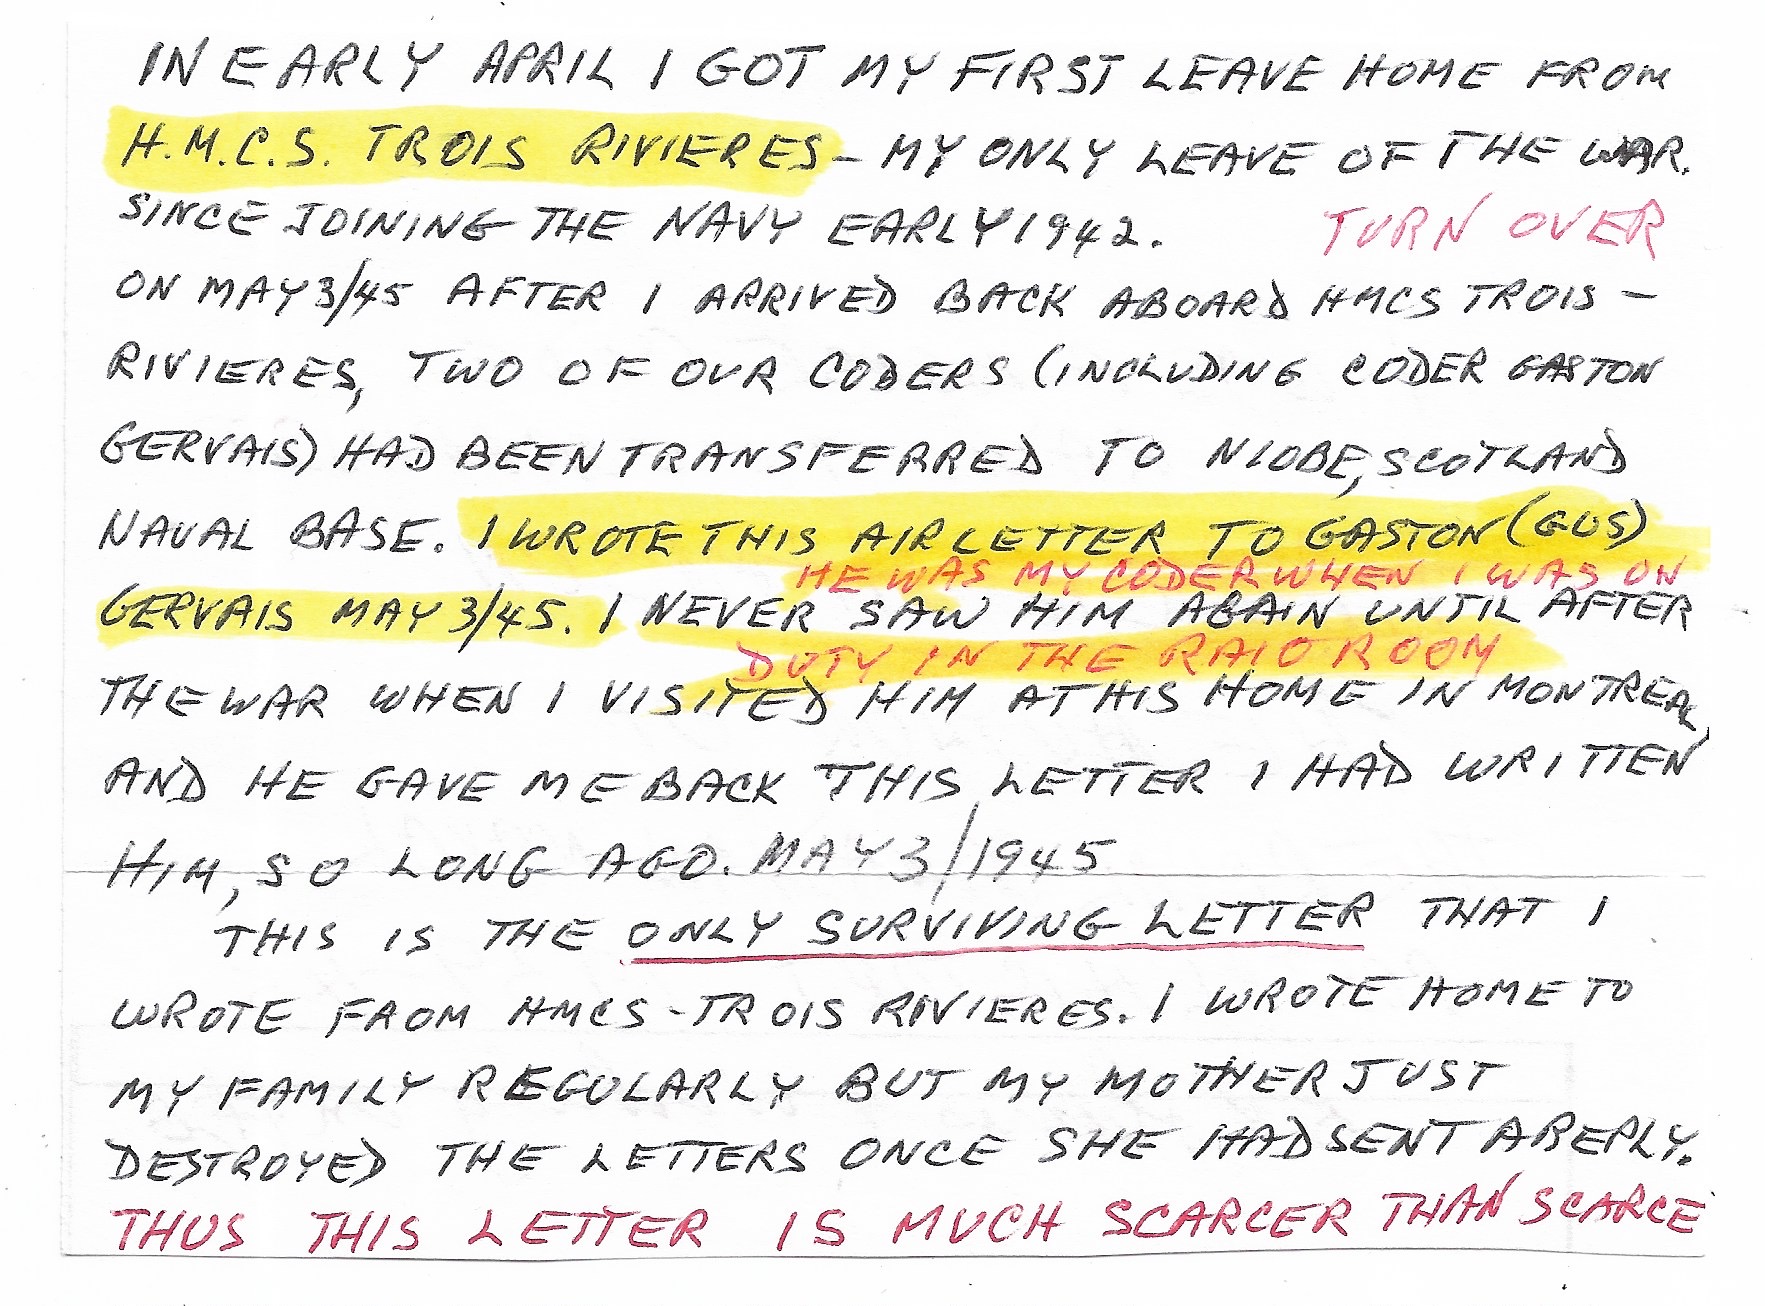 IN EARLY APRIL I GOT MY FIRST LEAVE HOME FROM
H.M.C.S. TROIS RIVIERES - MY ONLY LEAVE OF THE WAR.
SINCE JOINING THE NAVY EARLY 1942. TURN OVER
ON MAY 3/45 AFTER I ARRIVED BACK ABOARD HMCS TROIS -
RIVIERES, TWO OF OUR CODERS (INCLUDING CODER GASTON
GERVAIS) HAD BEEN TRANSFERRED TO NIOBE, SCOTLAND
NAVAL BASE. I WROTE THIS AIR LETTER TO GASTON (GUS)
HE WAS MY CODER WHEN I WAS ON
GERVAIS MAY 3/45. I NEVER SAW HIM AGAIN UNTIL AFTER
DUTY IN THE RAIO ROOM
THE WAR WHEN I VISITED HIM AT HIS HOME IN MONTREAL,
AND HE GAVE ME BACK THIS LETTER I HAD WRITTEN
HIM, SO LONG AGO. MAY 3/1945
THIS IS THE ONLY SURVIVING LETTER THAT I
WROTE FROM HMCS - TROIS RIVIERES. I WROTE HOME TO
MY FAMILY REGULARLY BUT MY MOTHER JUST
DESTROYED THE LETTERS ONCE SHE HAD SENT A REPLY.
THUS THIS LETTER IS MUCH SCARCER THAN SCARCE